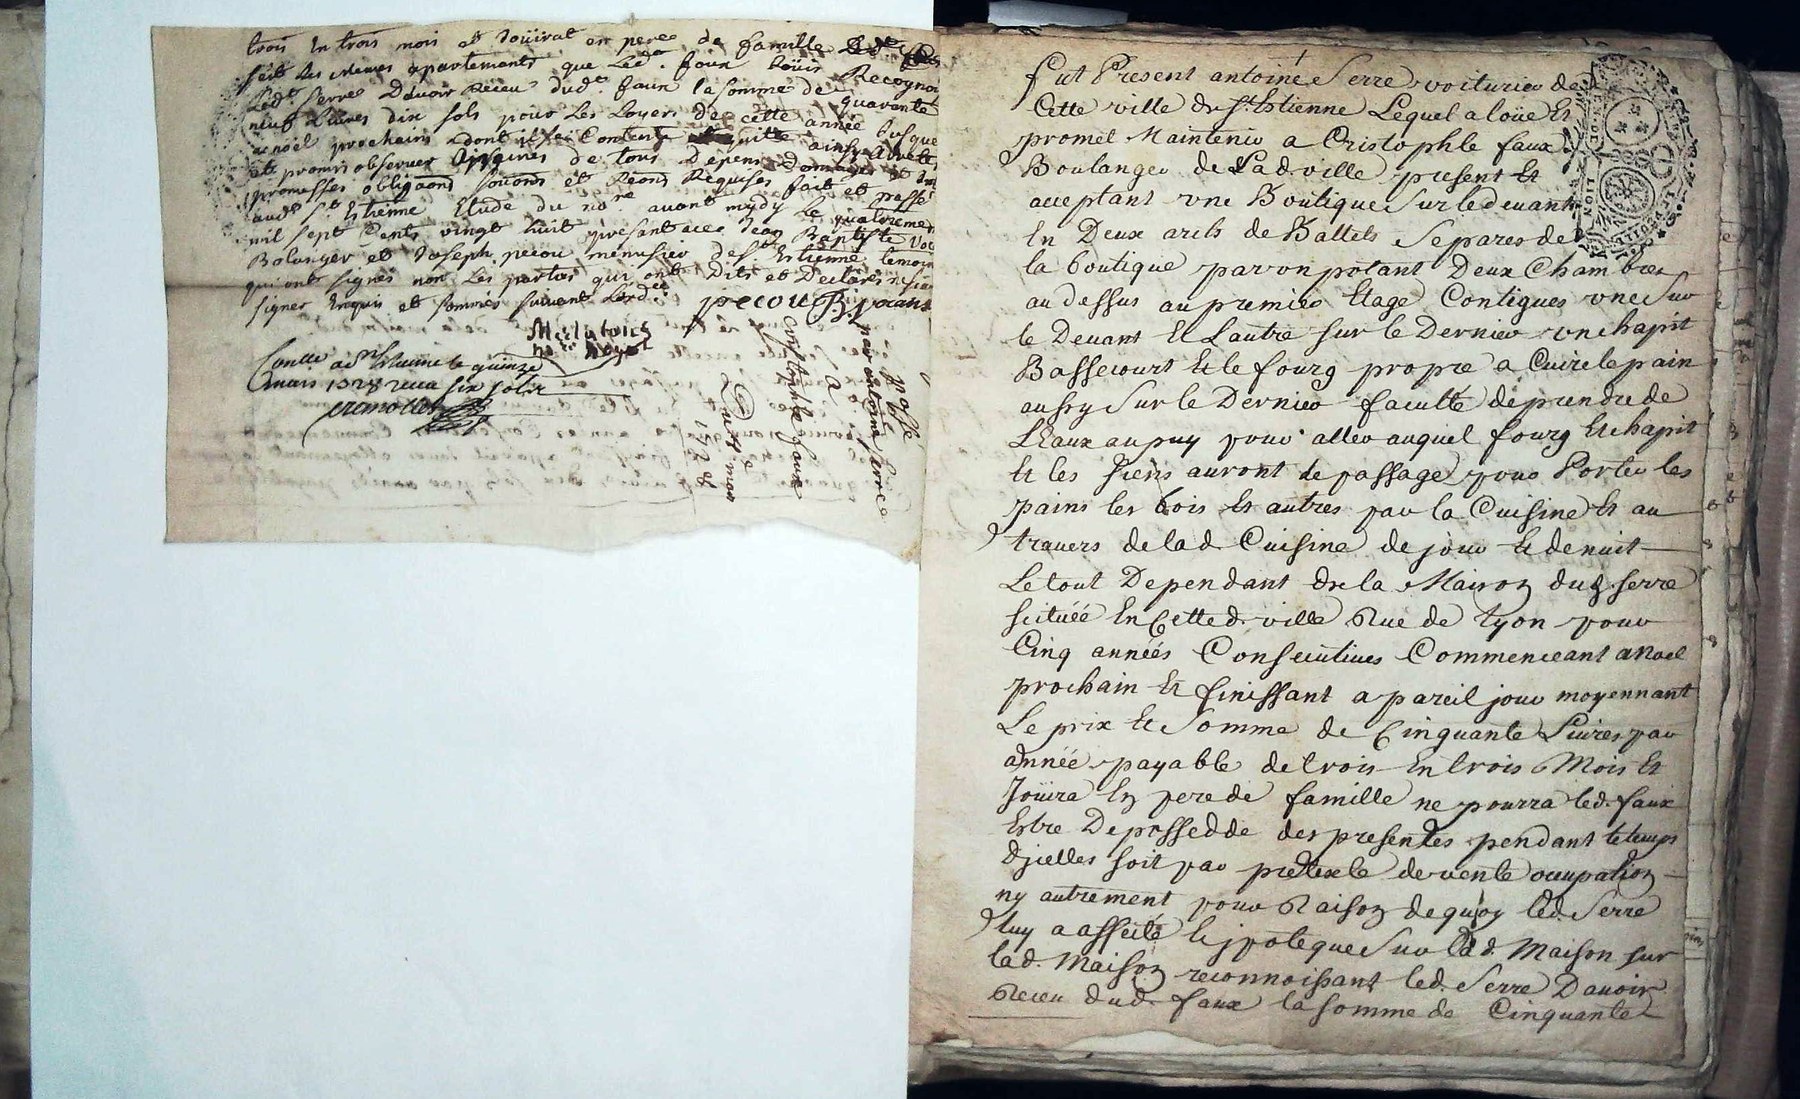 trois En trois mois et Joüirat en pere de famille Led.t
fait des mêmes apartements que Led.t faux
Led.t Serre D'avoir Receu dud.t faux la somme de Recognoi
neuf Livres dix sols pour Les Loyers De cette année quarante
a noel prochain dont il se Contente quitte jusque
et promis observer a peines de tous Depens Domages et
promesses obligaons soumons et Reons Requises fait et passé
aud.t S.t Estienne Etude du no.re avant mydy Le quatorze mars
mil sept Cents vingt huit présant avec Jean Baptiste
Bolanger et Joseph pecou menusier de S.t Estienne temoin
qui ont signés non Les parties qui ont Dits et Declarés
signer Enquis et sommés suivant L'ord.ce
pecou B.
no.re Royal
Con.llé a S.t Estienne le quinze
mars 1728 receu six sols
passé
par antoine Serre
A
Cristophle faure
Du 14 mars
1728
fut Present antoine Serre voiturier de
Cette ville de S.t Estienne Lequel a loüé Et
promet Maintenir a Cristophle faux
Boulanger de Ladville present Et
acceptant une Boutique Sur le devant
En Deux arcs de Battels Separes de
la boutique par un potant Deux Chambres
au dessus au premier Etage Contigues une Sur
le Devant Et Lautre sur le Dernier un chapit
Bassecourt Et le fourg propre a Cuire le pain
aussy Sur le Dernier faculté de prendre de
LEaux au puy pour aller auquel fourg Et chapit
Et les siens auront de passage pour Porter les
pains les bois Et autres par la Cuisine Et au
travers de lad. Cuisine de jour Et de nuit
Le tout Dependant de la Maison dud. Serre
scituée En Cetted. ville Rue de Lyon pour
Cinq années Consecutives Commenceant a Noel
prochain Et finissant a pareil jour moyennant
Le prix Et Somme de Cinquante Livres par
année payable de trois En trois Mois Et
Joüira En pere de famille ne pourra led. faux
Estre Depossedde des presentes pendant le temps
Djcelles soit par pretexte de vente occupation
ny autrement pour Raison de quoy led. Serre
luy a affecté Et jpoteque Sur lad. Maison sur
lad. Maison reconnoissant led. Serre Davoir
Receu dud. faux la somme de Cinquante